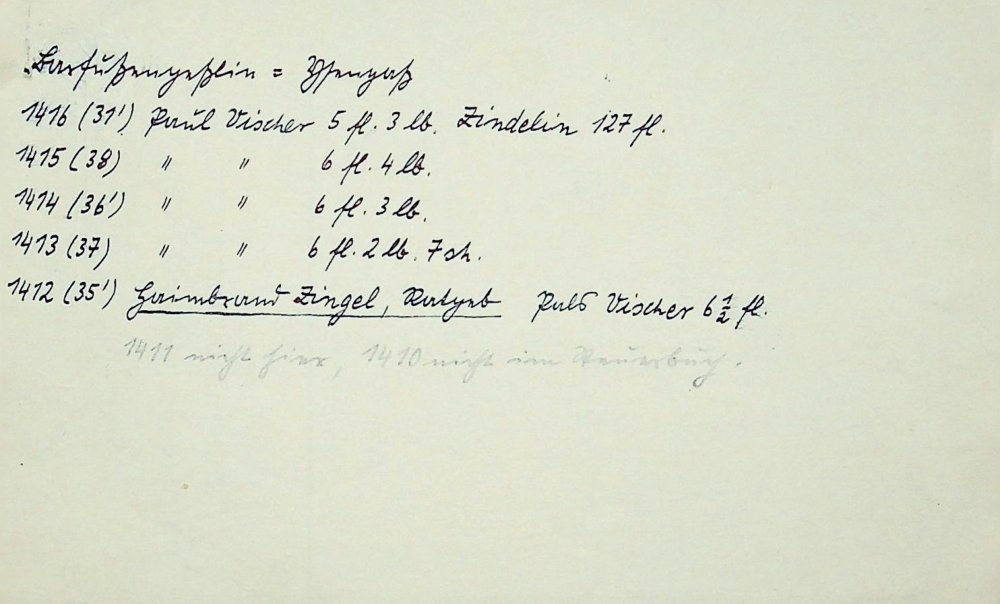 Barfußengeßlin = Ysengaß
1416 (31') Paul Vischer 5 fl. 3 lb. Zindelin 127 fl.
1415 (38) " " 6 fl. 4 lb.
1414 (36') " " 6 fl. 3 lb.
1413 (37) " " 6 fl. 2 lb. 7 sh.
1412 (35') Haimbrand Zingel, Ratgeb Pals Vischer 6 1/2 fl.
1411 nicht hier, 1410 nicht im Steuerbuch.